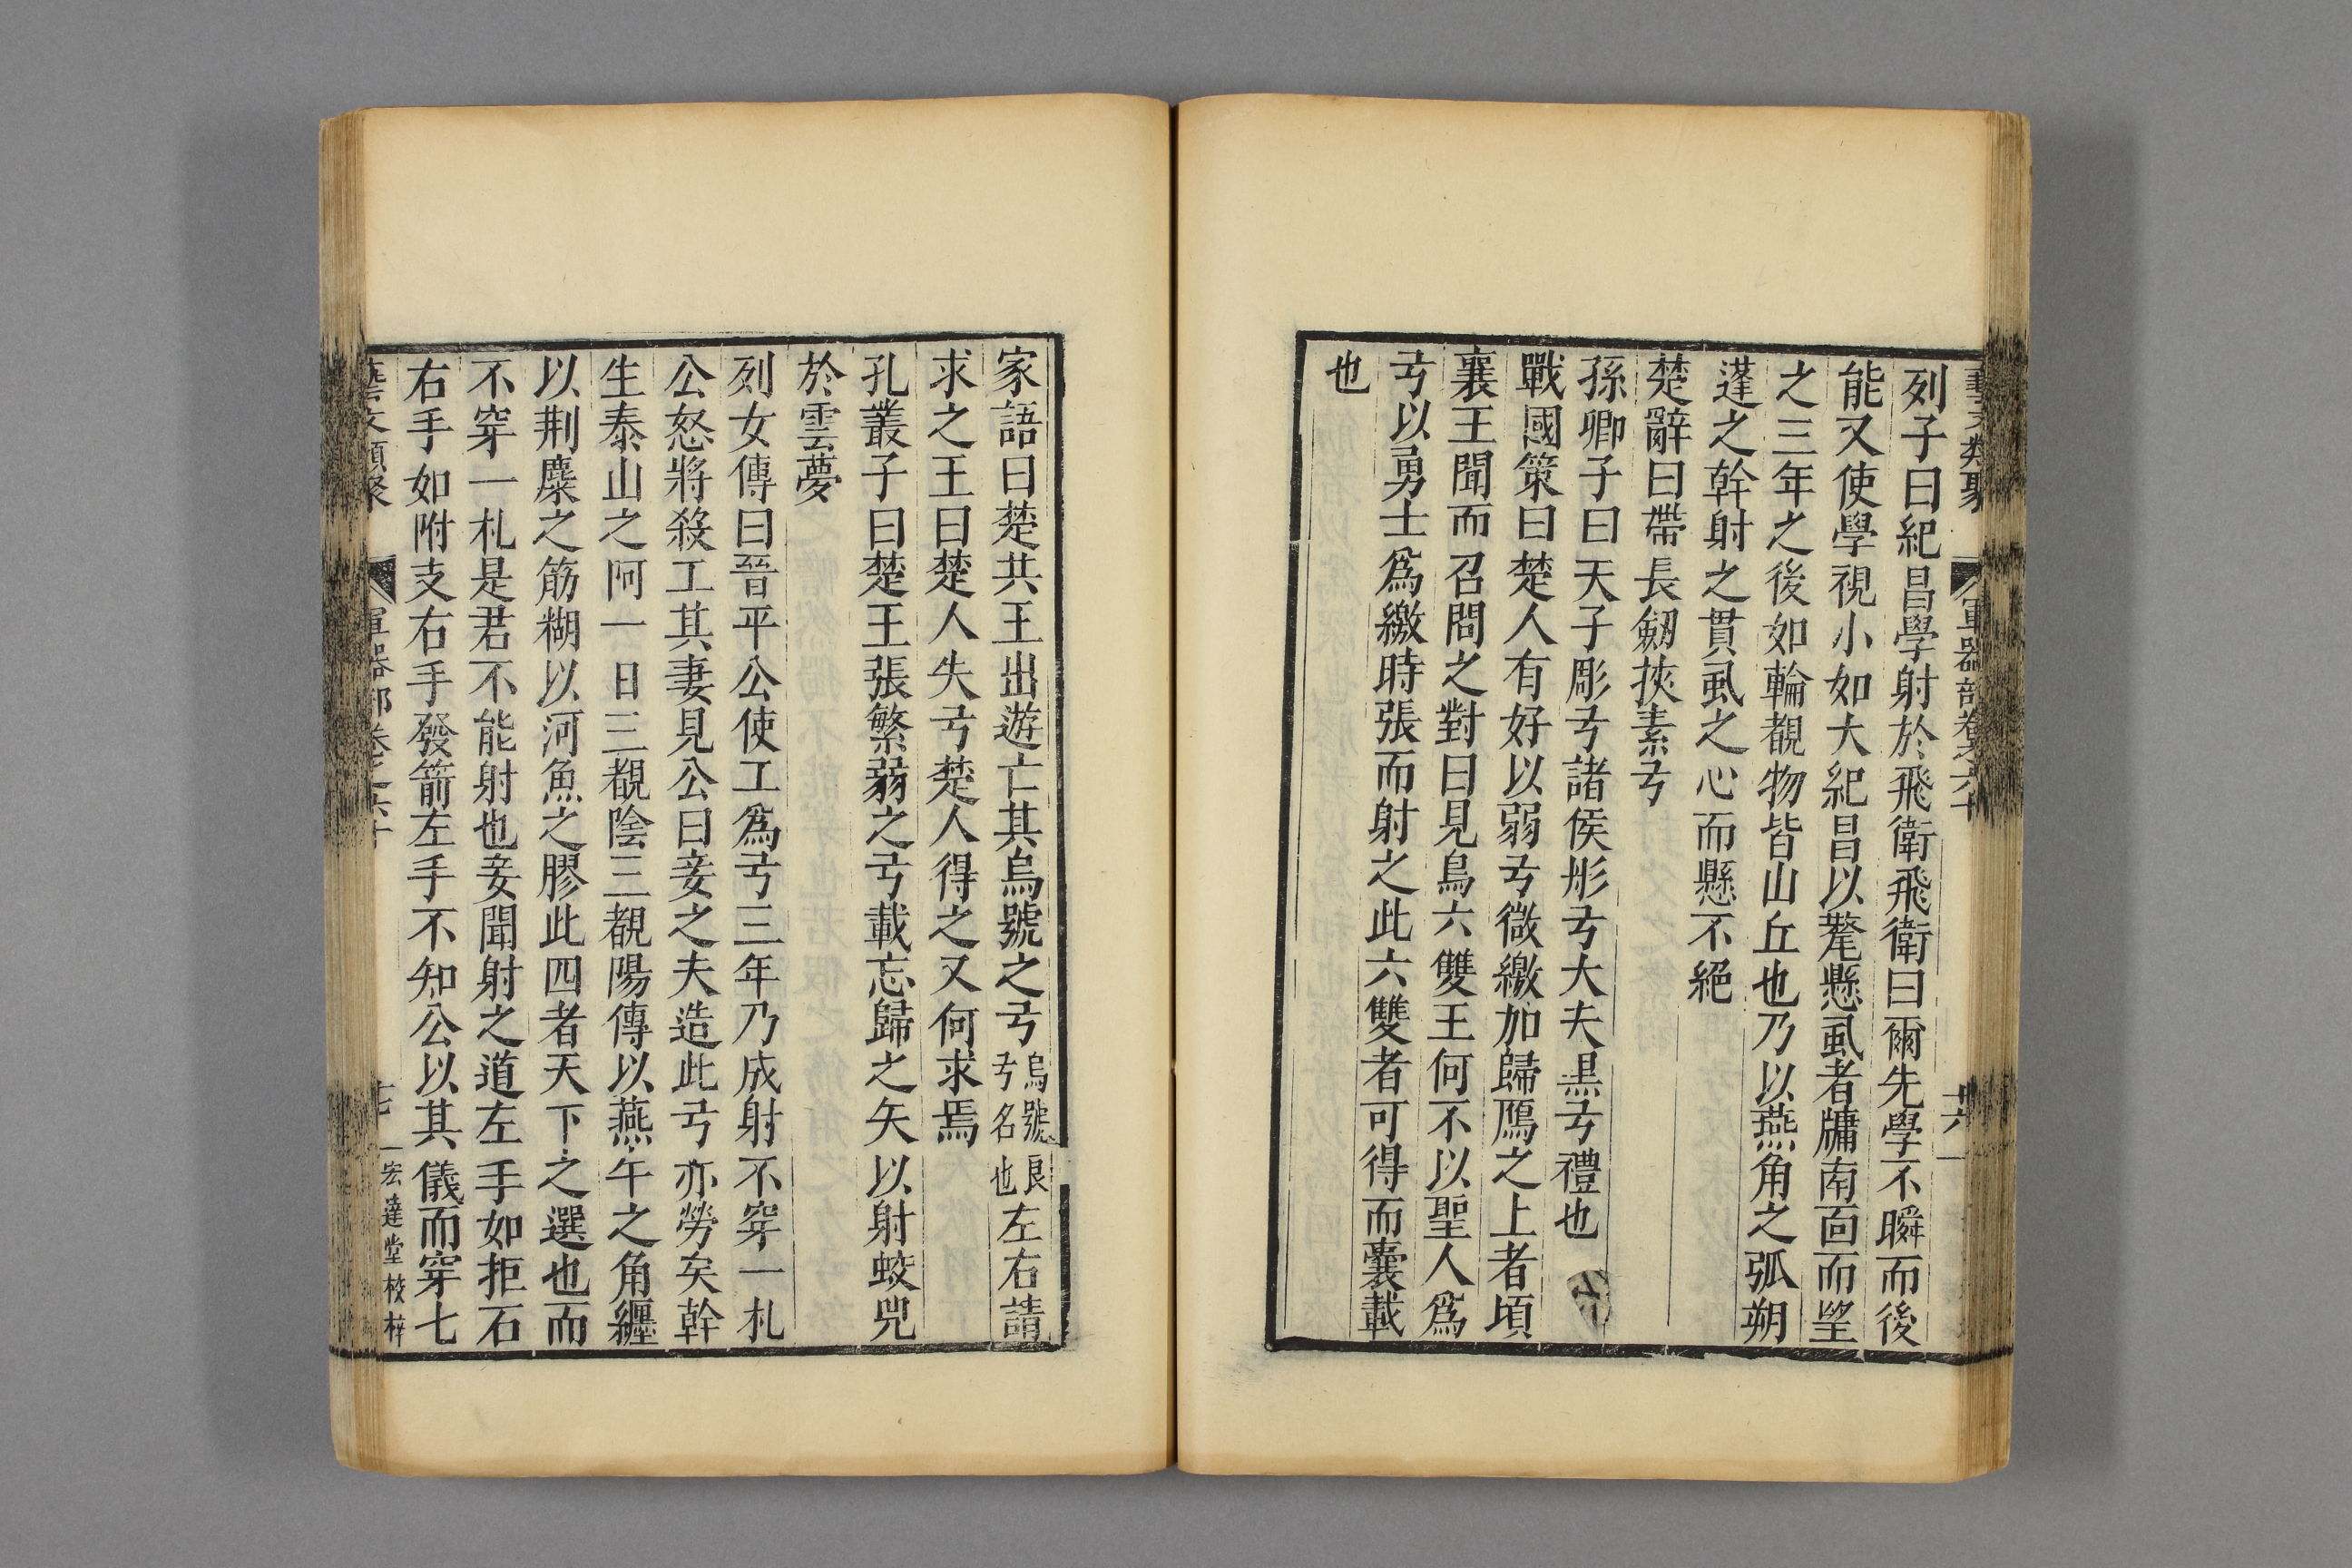 藝文類聚 軍器部卷之六十 十六
列子曰紀昌學射於飛衛飛衛曰爾先學不瞬而後
能又使學視小如大紀昌以氂懸虱者牖南面而望
之三年之後如輪覩物皆山丘也乃以燕角之弧朔
蓬之幹射之貫虱之心而懸不絕
楚辭曰帶長劒挾素弓
孫卿子曰天子彫弓諸侯彤弓大夫黑弓禮也
戰國策曰楚人有好以弱弓微繳加歸鴈之上者頃
襄王聞而召問之對曰見鳥六雙王何不以聖人爲
弓以勇士爲繳時張而射之此六雙者可得而囊載
也
家語曰楚共王出遊亡其烏號之弓烏號良弓名也左右請
求之王曰楚人失弓楚人得之又何求焉
孔叢子曰楚王張繁弱之弓載忘歸之矢以射蛟兕
於雲夢
列女傳曰晉平公使工爲弓三年乃成射不穿一札
公怒將殺工其妻見公曰妾之夫造此弓亦勞矣幹
生泰山之阿一日三覩陰三覩陽傳以燕午之角纏
以荆麋之筋糊以河魚之膠此四者天下之選也而
不穿一札是君不能射也妾聞射之道左手如拒石
右手如附支右手發箭左手不知公以其儀而穿七
藝文類聚 軍器部卷之六十 十七 宏達堂校梓